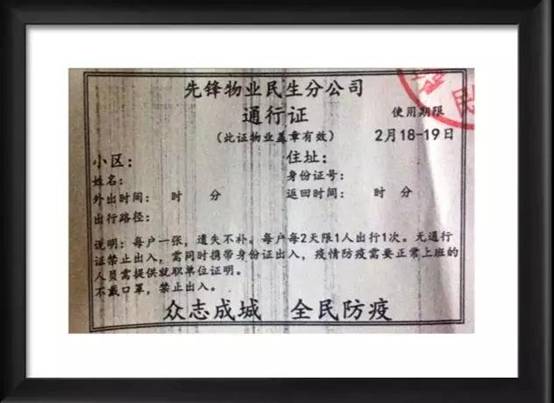 先锋物业民生分公司
通行证
使用期限
(此证物业盖章有效)
2月18-19日
小区：
住址：
姓名：
身份证号：
外出时间： 时 分
返回时间： 时 分
出行路径：
说明：每户一张，遗失不补。每户每2天限1人出行1次。无通行
证禁止出入，需同时携带身份证出入，疫情防疫需要正常上班的
人员需提供就职单位证明。
不戴口罩，禁止出入。
众志成城 全民防疫